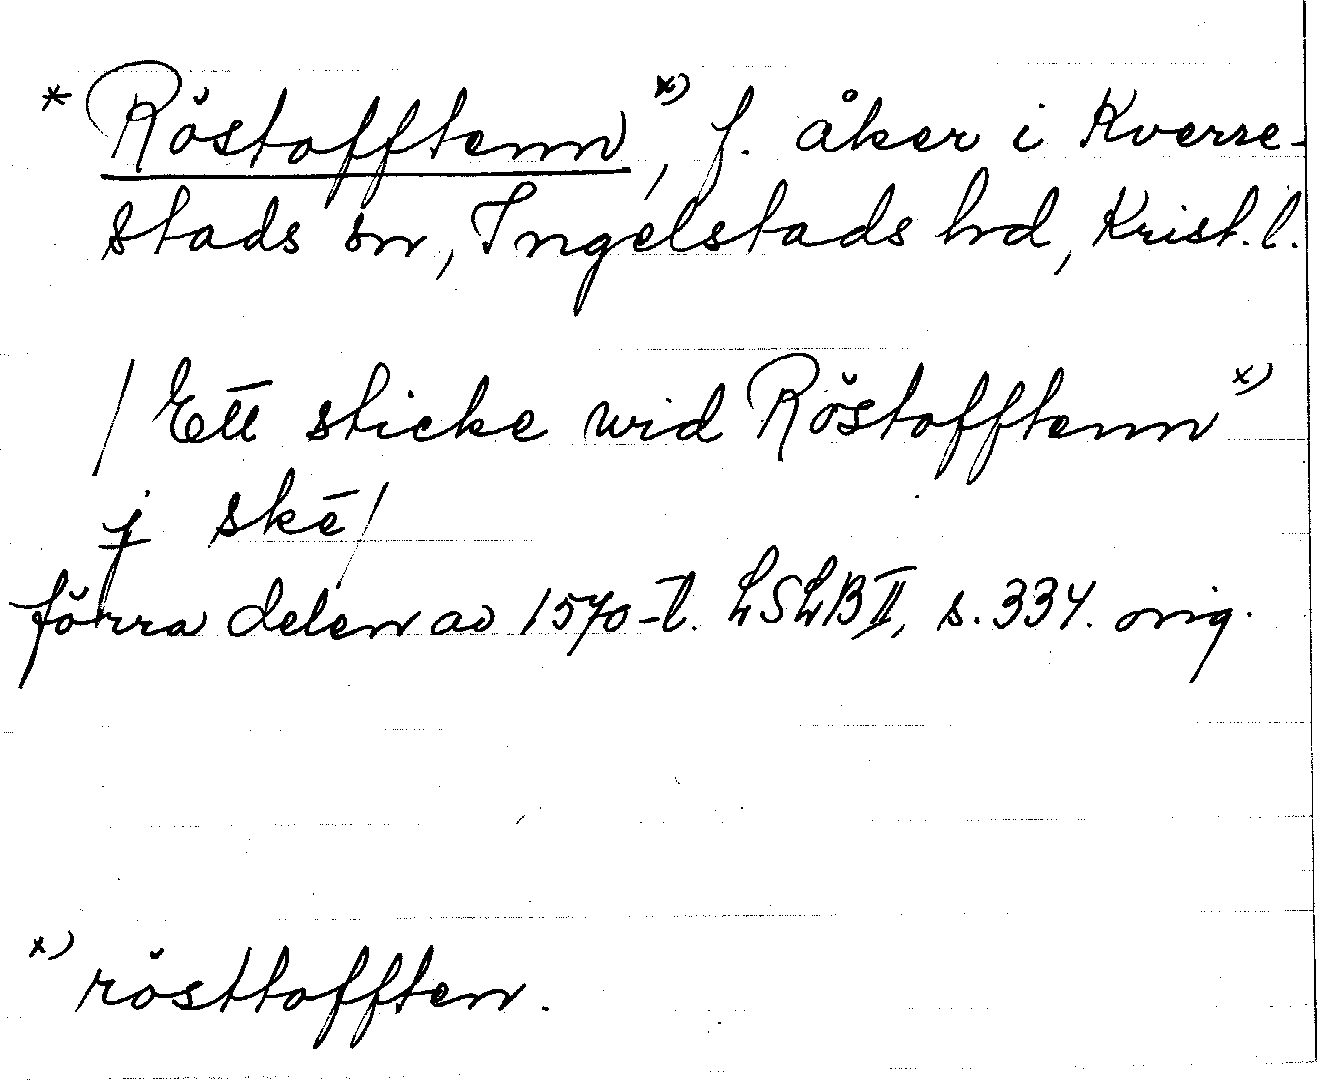 * Röstofftenn x), f. åker i Kverre-
stads sn, Ingelstads hd, Krist. l.
/ Ett sticke wid Röstofftenn x)
j skē /
förra delen av 1570-t. LSLB II, s. 334. orig.
x) rösttofften.